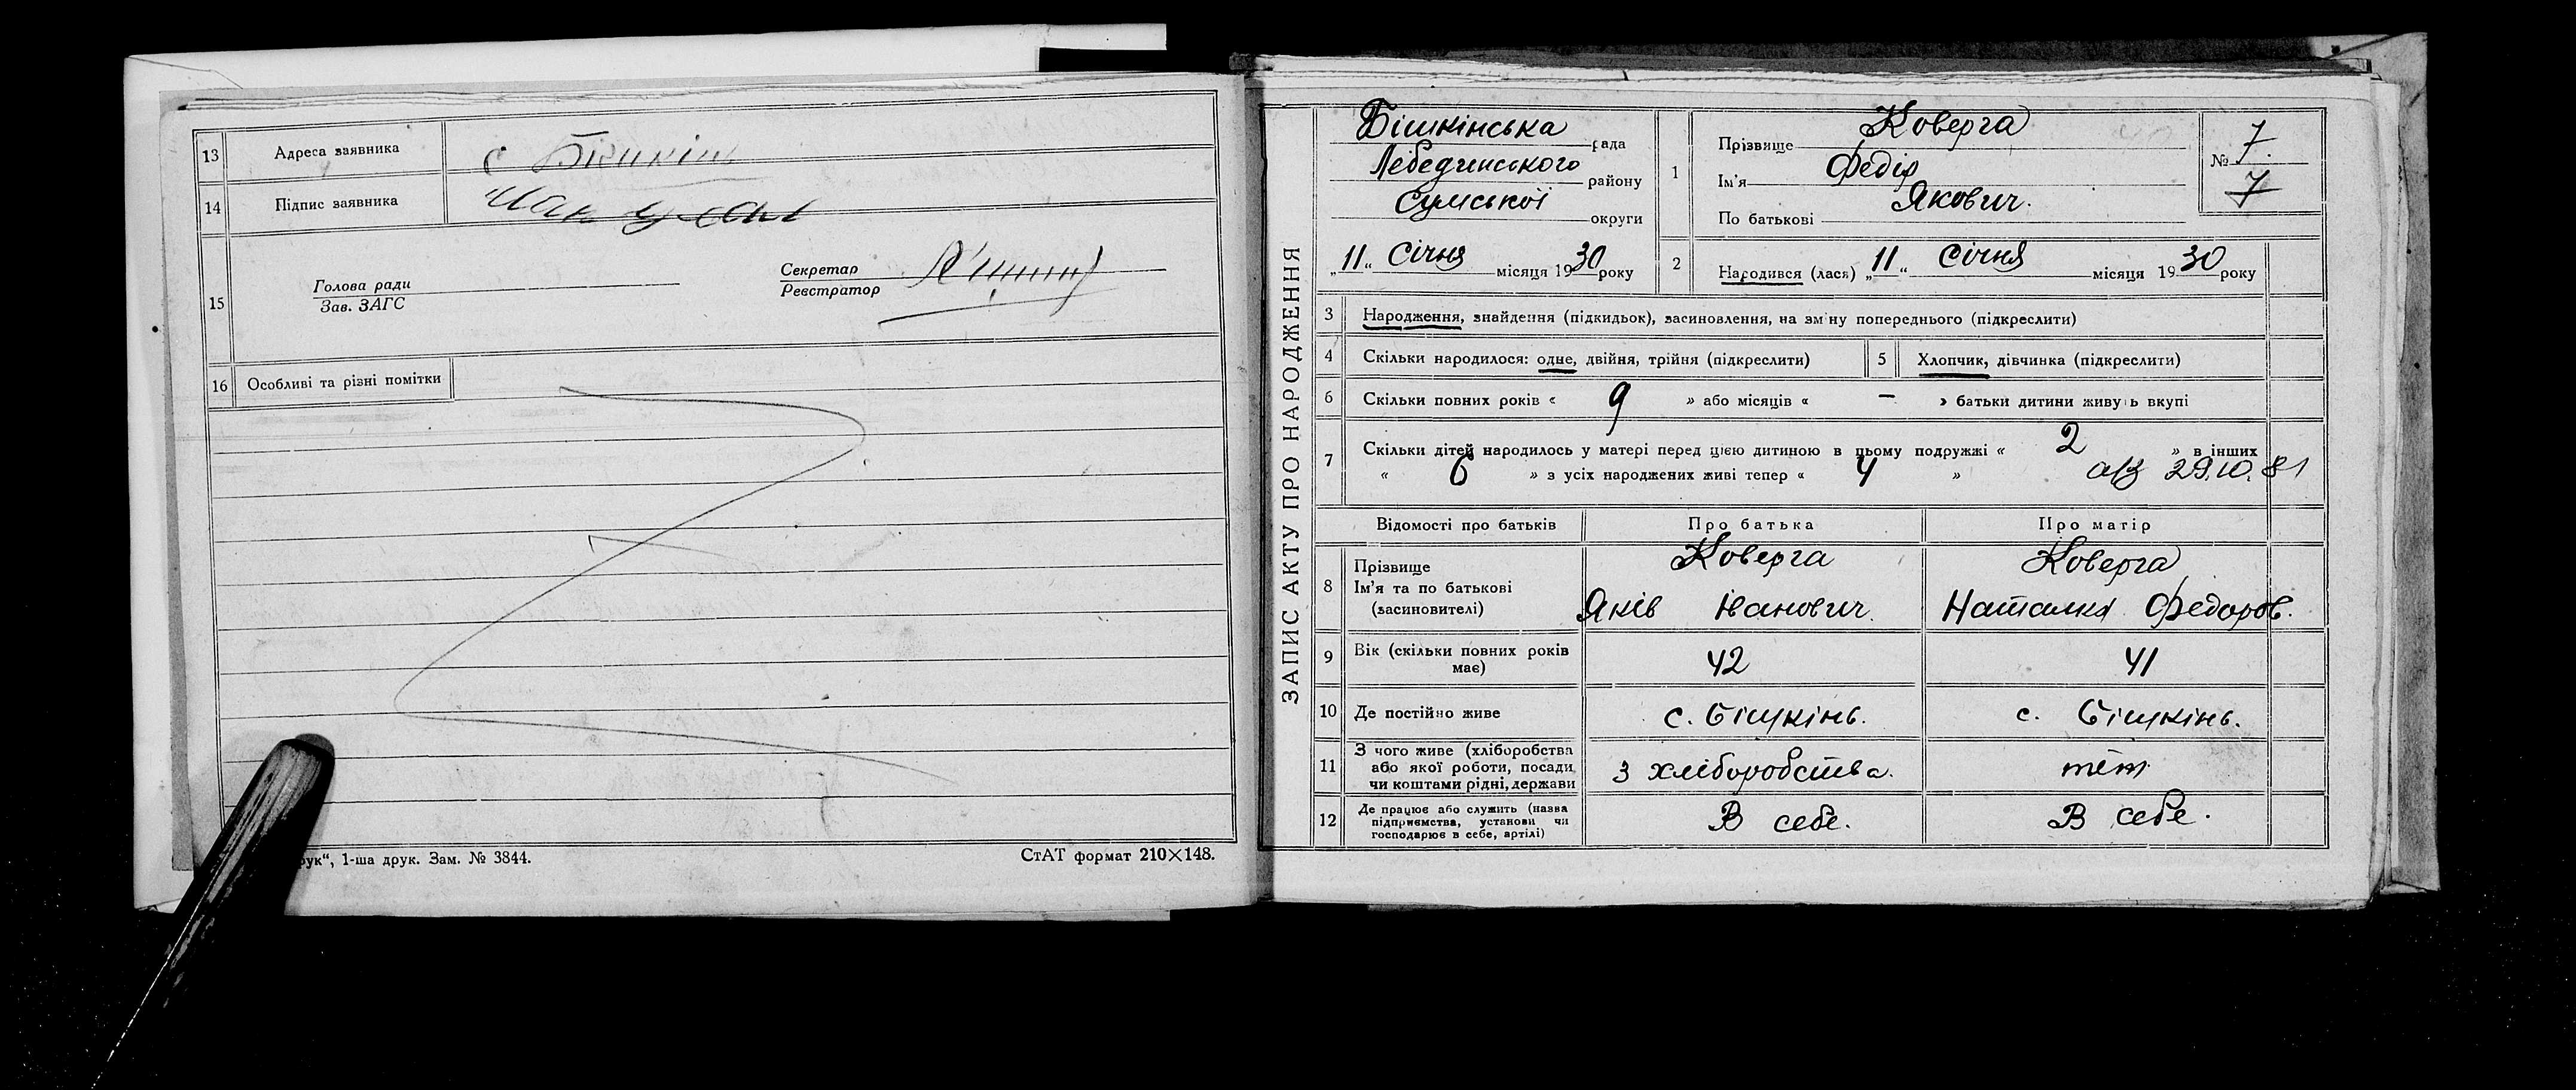 13 Адреса заявника с Бишкінь
14 Підпис заявника
15 Голова ради
Зав. ЗАГС
Секретар
Реєстратор
16 Особливі та різні помітки
рук“, 1-ша друк. Зам. № 3844.
СтАТ формат 210×148.
ЗАПИС АКТУ ПРО НАРОДЖЕННЯ
Бішкінська рада
Лебединського району
Сумської округи
„11“ Січня місяця 1930 року
1 Прізвище Коверга
Ім'я Федір
По батькові Якович.
№ 7.
7
2 Народився (лася) „11“ Січня місяця 1930 року
3 Народження, знайдення (підкидьок), засиновлення, на зміну попереднього (підкреслити)
4 Скільки народилося: одне, двійня, трійня (підкреслити)
5 Хлопчик, дівчинка (підкреслити)
6 Скільки повних років « 9 » або місяців « — » батьки дитини живуть вкупі
7 Скільки дітей народилось у матері перед цією дитиною в цьому подружжі « 2 » в інших
« 6 » з усіх народжених живі тепер « 4 » 29.10.81
Відомості про батьків Про батька Про матір
8 Прізвище
Ім'я та по батькові
(засиновителі)
Коверга
Яків Іванович.
Коверга
Наталия Федоров.
9 Вік (скільки повних років
має)
42
41
10 Де постійно живе с. Бішкінь. с. Бішкінь.
11 З чого живе (хліборобства
або якої роботи, посади,
чи коштами рідні, держави
з хліборобства.
теж
12 Де працює або служить (назва
підприємства, установи чи
господарює в себе, артілі)
В себе.
В себе.